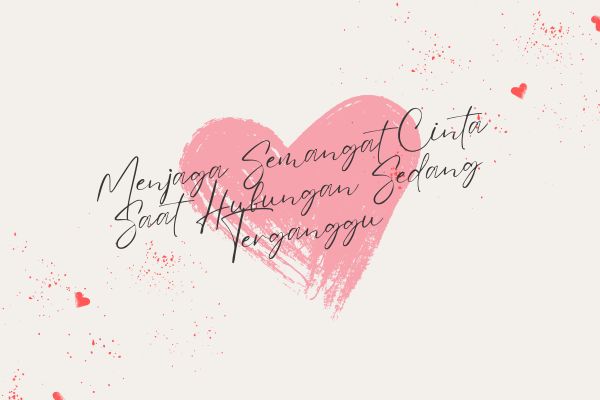 Menjaga Semangat Cinta
Saat Hubungan Sedang
Terganggu